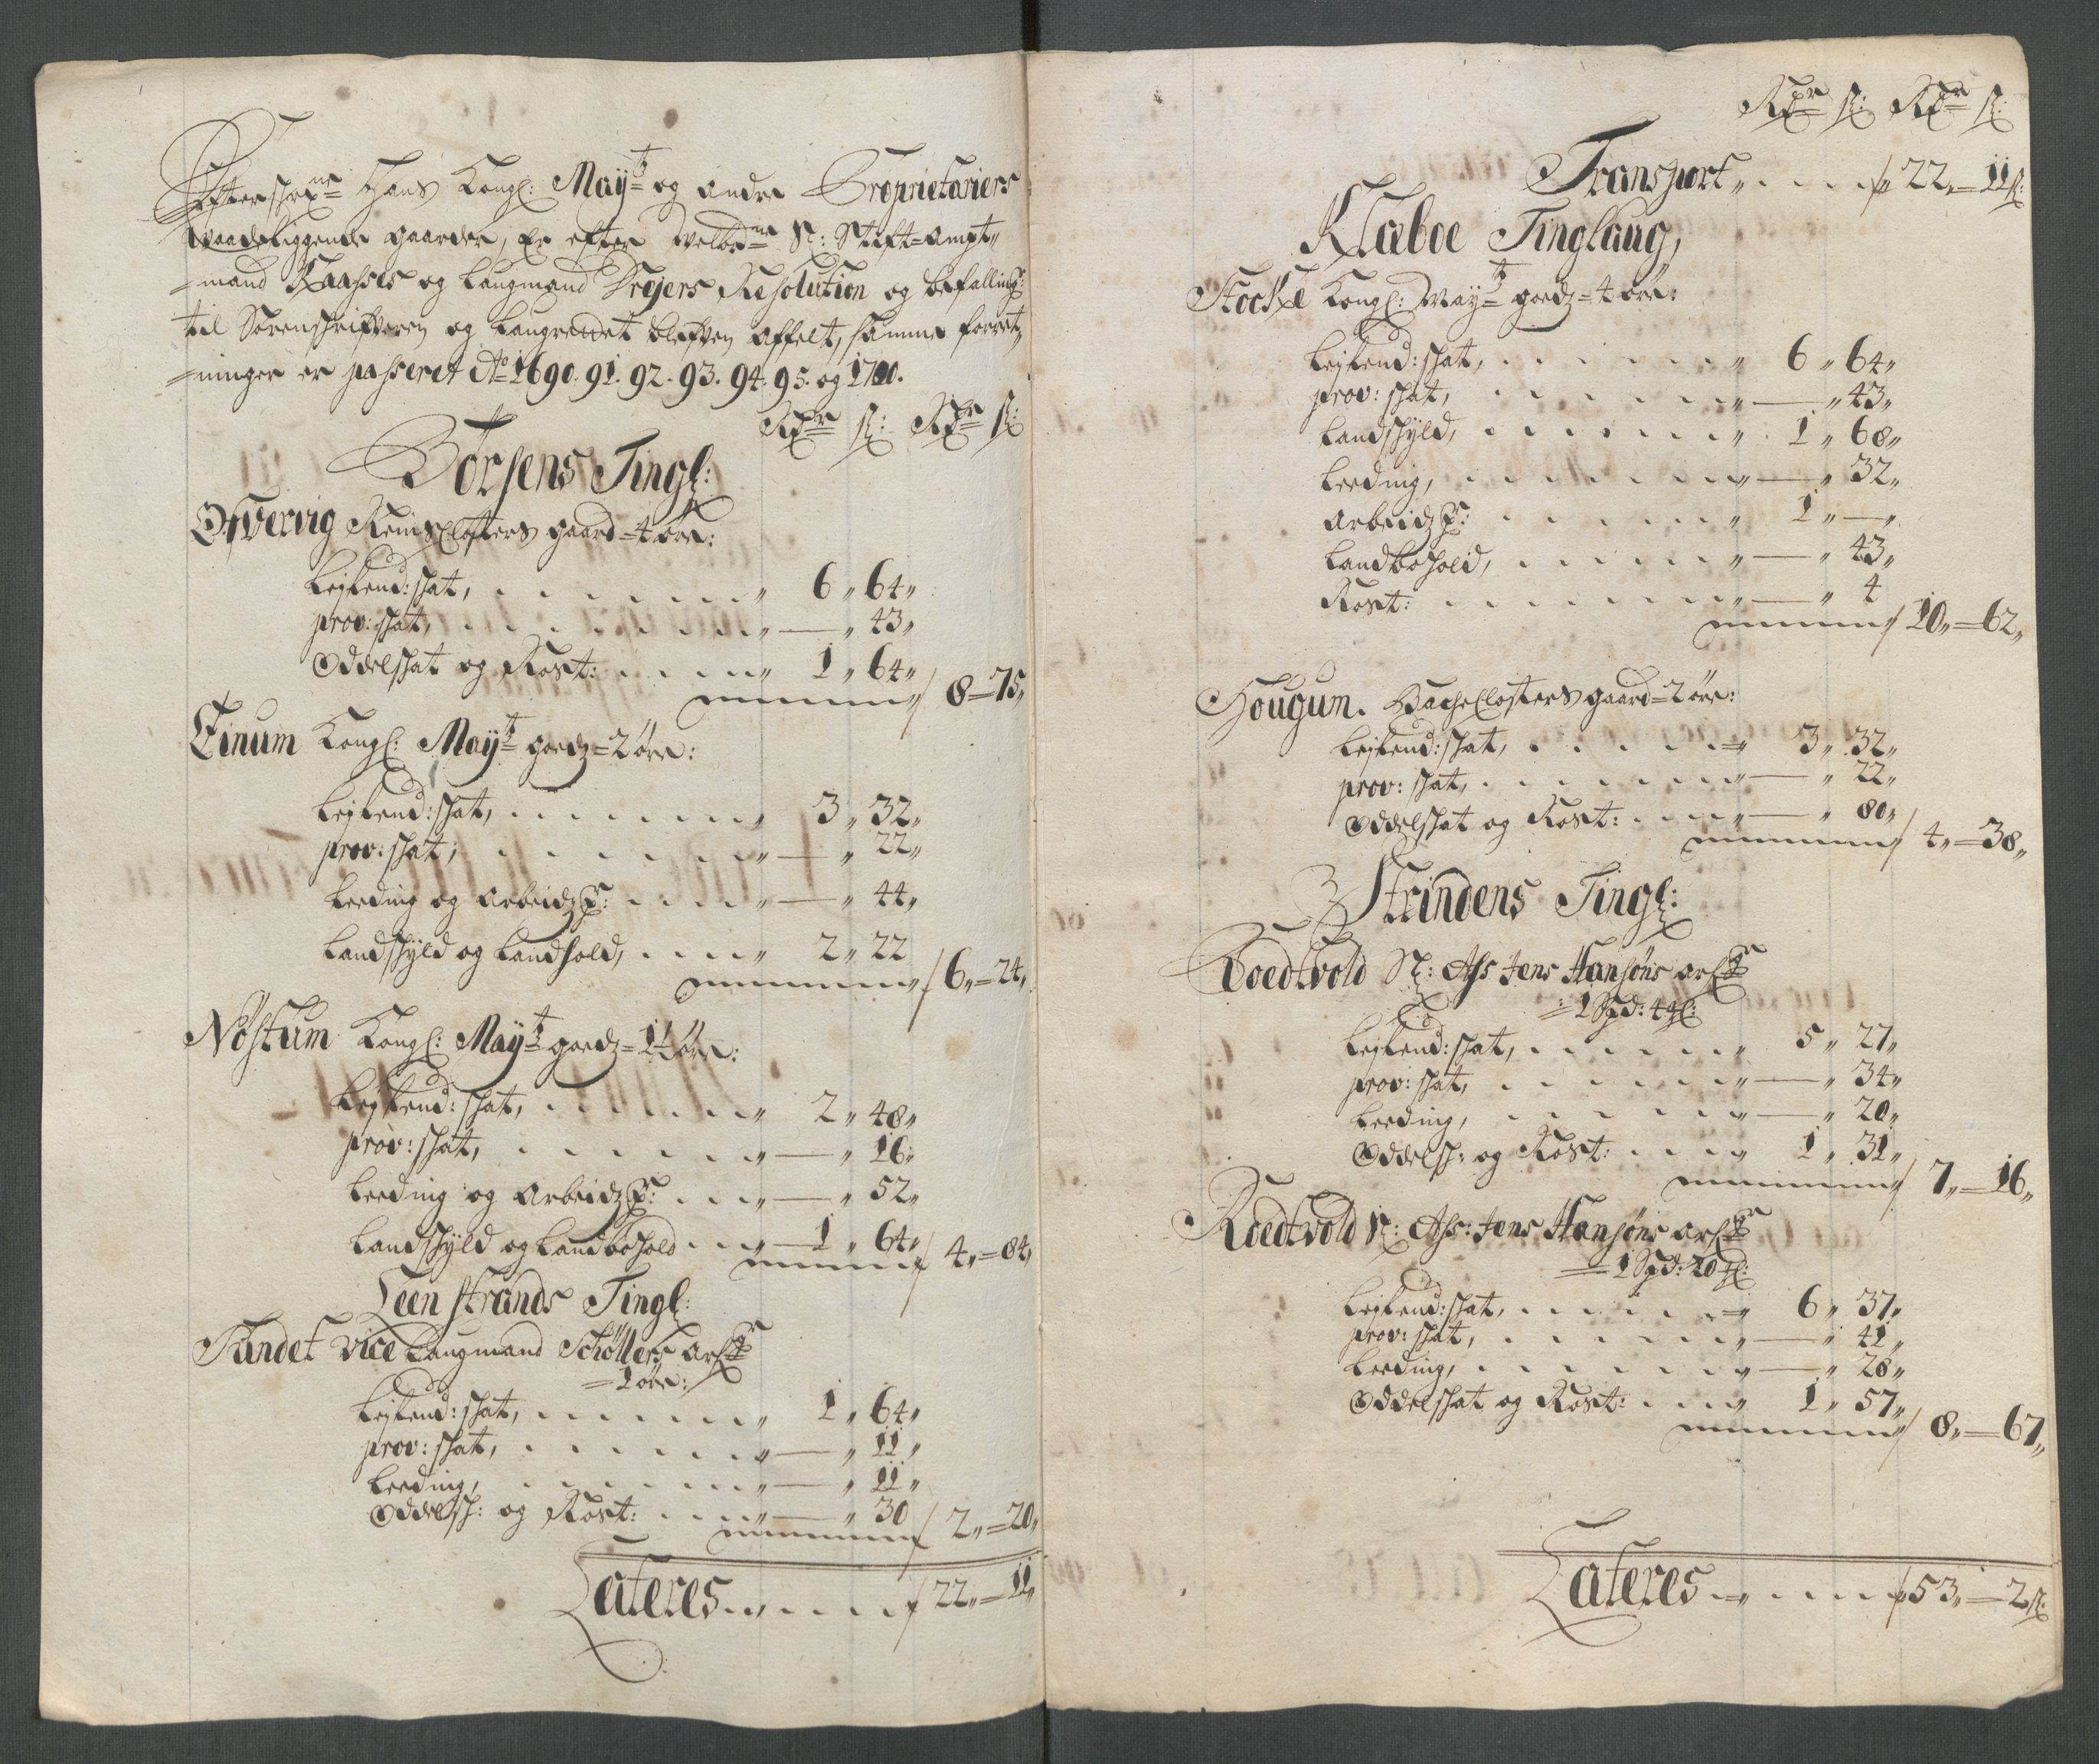 Efterschrefne Hans Kongl: Mayts og andre Proprietariers
Waadeliggende gaarder, er efter Welbrne Hr: Stift-Ampt
mand Kaasses og Laugmand Drejers Resolution og befalling:
til Sorenschrifveren og Laugredet blefven affelt, samme forret
ninger er passeret Ao 1690. 91. 92. 93. 94. 95. og 1700.
Rdr ß: Rdr ß:
Børsens Tingl:
Øfvervig Reins Closters gaard = 4 øre:
Lejlend: skat, 6 " 64 "
prov: skat, — " 43 "
Oddelskat og Rost: 1 " 64 "
8 = 75 "
Einum Kongl: Mayts goedz = 2 øre:
Lejlend: skat, 3 " 32 "
prov: skat, — " 22 "
Leeding og Arbeidzp: — " 44 "
Landskyld og Landhold, 2 " 22
6 " = 24 "
Nøstum Kongl: Mayts goedz = 1½ øre:
Lejlend: skat, 2 " 48 "
prov: skat, — " 16 "
Leeding og Arbeidzp: — " 52 "
Landskyld og Landbohold 1 " 64 "
4 " = 84 "
Leenstrands Tingl:
Sandet vice Laugmand Schøllers arf:
= 1 øre:
Lejlend: skat, 1 " 64 "
prov: skat, — " 11 "
Leeding, — " 11 "
Oddelsk: og Rost: — " 30
2 " = 20 "
Lateres 22 " = 11 "
Rdr ß: Rdr ß:
Transport 22 " = 11 ß:
Klæboe Tinglaug,
Stocke Kongl: Mayts goedz = 4 øre:
Lejlend: skat, 6 " 64 "
prov: skat, — " 43 "
Landskyld, 1 " 68 "
Leeding, — " 32 "
Arbeidzp: 1 " — "
Landbohold, — " 43 "
Rost: — " 4
10 " = 62 "
Hougum. Bache Closters gaard = 2 øre:
Lejlend: skat, 3 " 32 "
prov: skat, — " 22 "
Oddelskat og Rost: — " 80 "
4 " = 38 "
Strindens Tingl:
Roedtvold Sl: Ass Jens Hansøns arf:
= 1 Spd: 4
Lejlend: skat, 5 " 27 "
prov: skat, — " 34 "
Leeding, — " 20 "
Oddelsk: og Rost: 1 " 31 "
7 " = 16 "
Roedtvold Sl: Ass: Jens Hansøns arf:
= 1 Spd: 20
Lejlend: skat, 6 " 37 "
prov: skat, — " 41 "
Leeding, — " 28 "
Oddelskat og Rost: 1 " 57 "
8 " = 67 "
Lateres 53 " = 2 ß: